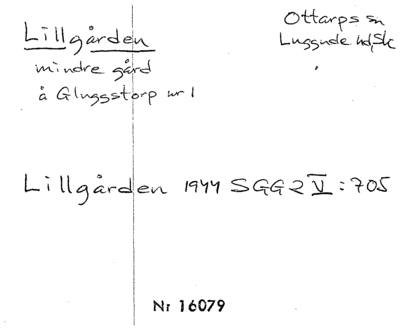 Lillgården
mindre gård
å Gluggstorp nr 1
Ottarps sn
Luggude hd, Sk
Lillgården 1944 SGG 2 V : 705
Nr 16079